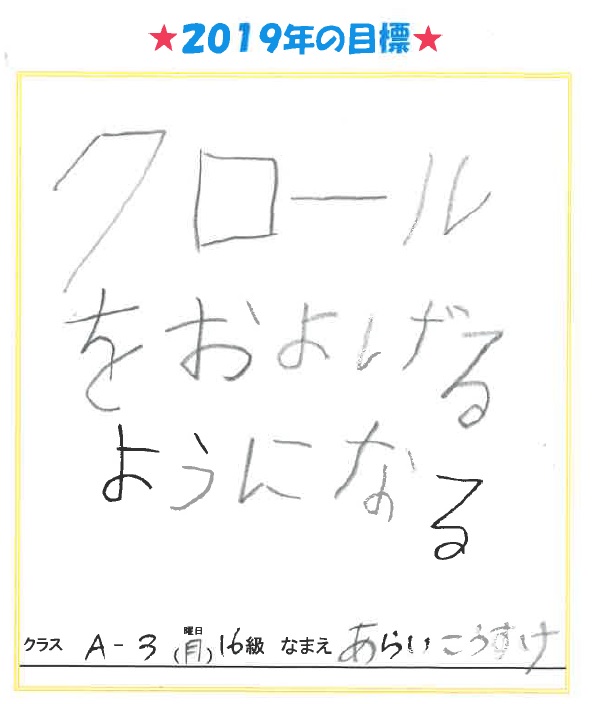 ★2019年の目標★
クロール
をおよげる
ようになる
クラス A-3 曜日(月)16級 なまえ あらいこうすけ